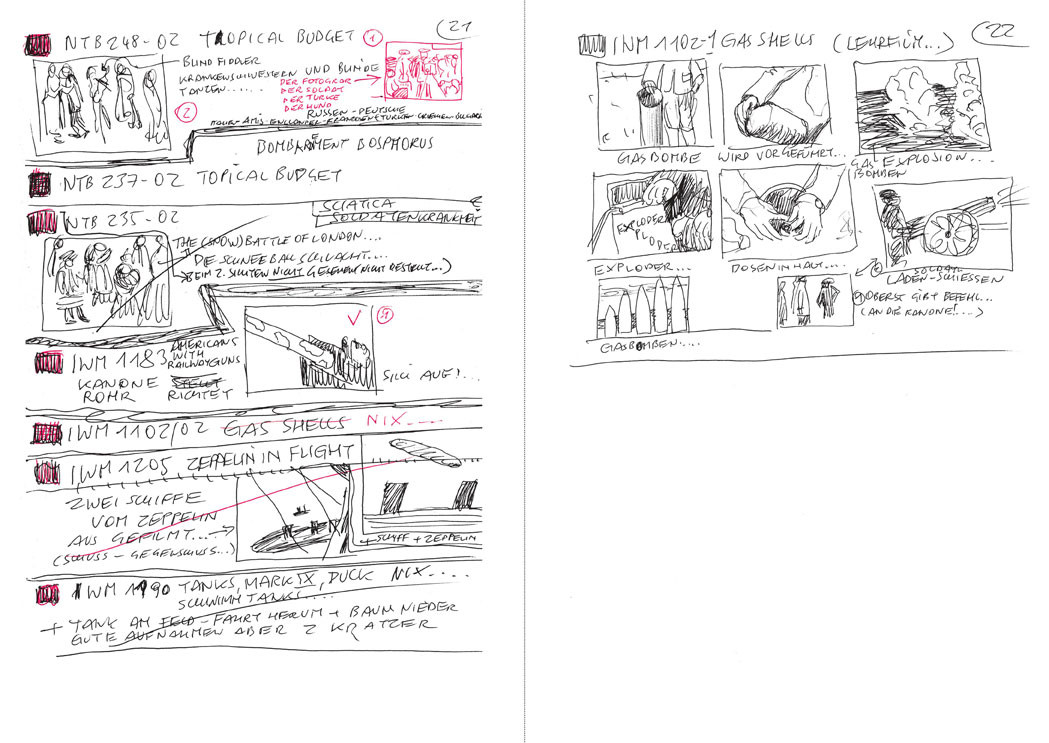 21
NTB 248-02 TROPICAL BUDGET 1
BLIND FIDLER
KRANKENSCHWESTERN UND BLINDE
TANZEN......
2
DER FOTOGRAF
DER SOLDAT
DER TÜRKE
DER HUND
RUSSEN-DEUTSCHE
BOMBARDEMENT BOSPHORUS
NTB 237-02 TOPICAL BUDGET
NTB 235-02
SCIATICA
SOLDATENKRANKHEIT
THE (SNOW) BATTLE OF LONDON....
DIE SCHNEEBALLSCHLACHT....
BEIM 2. SICHTEN NICHT GESEHEN NICHT BESTELLT...)
IWM 1183 AMERICANS
WITH
RAILWAYGUNS
KANONE STELLT
ROHR RICHTET
SICH AUF!...
IWM 1102/02 GAS SHELLS NIX.....
IWM 1205 ZEPPELIN IN FLIGHT
ZWEI SCHIFFE
VOM ZEPPELIN
AUS GEFILMT....
(SCHUSS - GEGENSCHUSS...)
+ SCHIFF + ZEPPELIN
IWM 1190 TANKS, MARK IX, DUCK NIX....
SCHWIMM TANKS....
+ TANK AM FELD - FÄHRT HERUM + BAUM NIEDER
GUTE AUFNAHMEN ABER 2 KRATZER
22
IWM 1102-1 GAS SHELLS (LEHRFILM...)
GASBOMBE
WIRD VORGEFÜHRT...
GAS EXPLOSION....
BOMBEN
EXPLODER
PLODER
EXPLODER...
DOSENINHALT....
SOLDAT
LADEN-SCHIESSEN
OBERST GIBT BEFEHL...
(AN DIE KANONE!....)
GASBOMBEN....